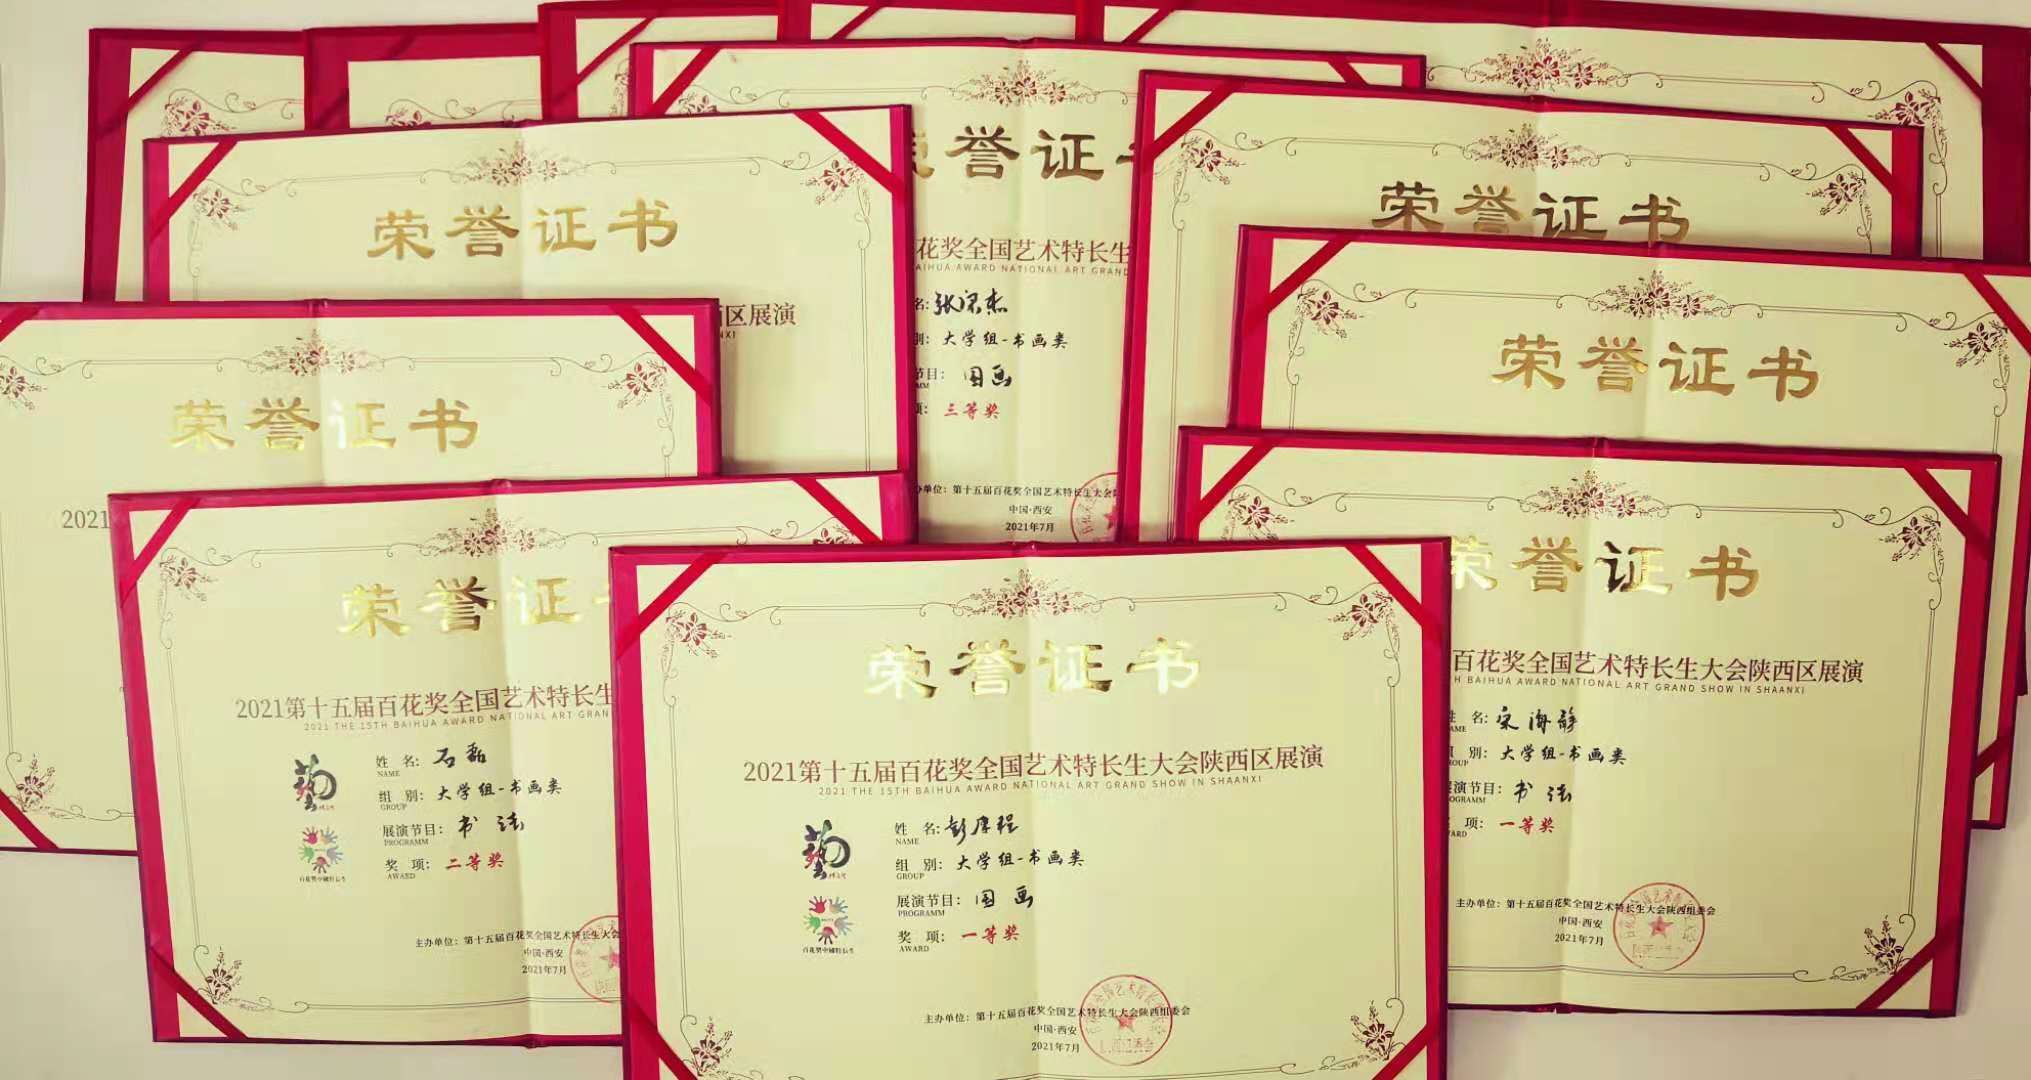 荣誉证书
区展演
荣誉证书
2021
荣誉证
2021第十五届百花奖全国艺术特长生
2021 THE 15TH BAIHUA AWARD NATIONAL ART GRAN
姓 名: 石磊
NAME
组 别: 大学组-书画类
GROUP
展演节目: 书法
PROGRAMM
奖 项: 二等奖
AWARD
百花奖中国特长生
主办单位: 第十五届百花奖全国艺术特长生大会
中国·西安
2021年7月
誉证
花奖全国艺术特长生
BAIHUA AWARD NATIONAL ART GRAND
大学组-书画类
节目: 国画
三等奖
办单位: 第十五届百花奖全国艺术特长生大会
中国·西安
2021年7月
荣誉证书
荣誉证书
荣誉证书
百花奖全国艺术特长生大会陕西区展演
TH BAIHUA AWARD NATIONAL ART GRAND SHOW IN SHAANXI
名: 宋海静
大学组-书画类
展演节目: 书法
项: 一等奖
主办单位: 第十五届百花奖全国艺术特长生大会陕西组委会
中国·西安
2021年7月
荣誉证书
2021第十五届百花奖全国艺术特长生大会陕西区展演
2021 THE 15TH BAIHUA AWARD NATIONAL ART GRAND SHOW IN SHAANXI
姓 名: 彭厚程
NAME
组 别: 大学组-书画类
GROUP
展演节目: 国画
PROGRAMM
奖 项: 一等奖
AWARD
百花奖中国特长生
主办单位: 第十五届百花奖全国艺术特长生大会陕西组委会
中国·西安
2021年7月